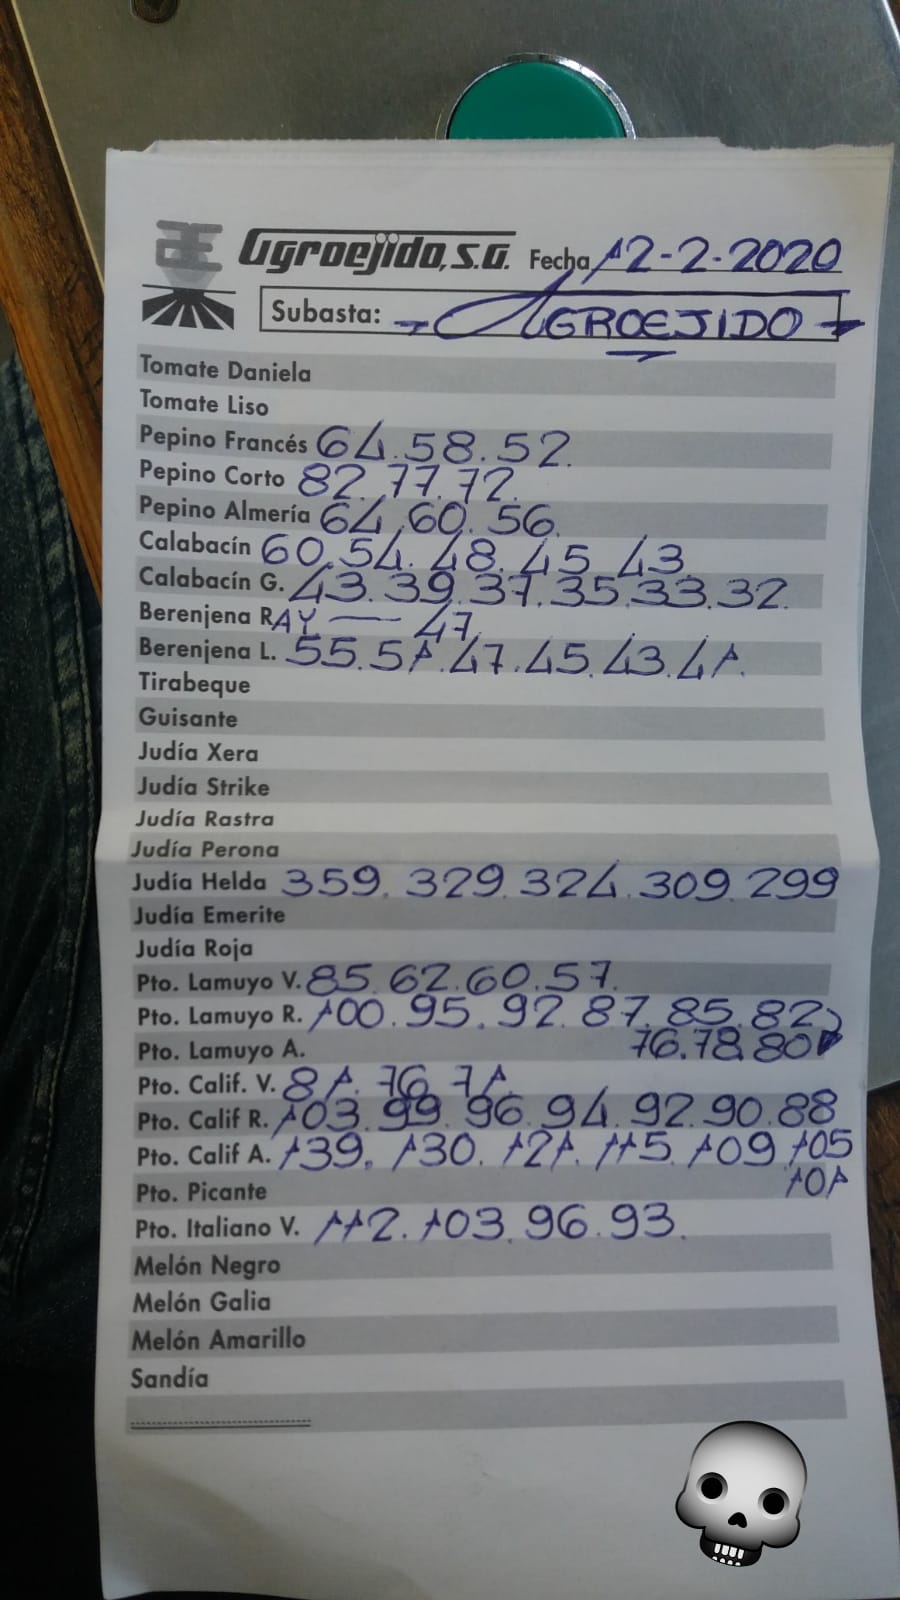 Agroejido, S.A. Fecha 12-2-2020
Subasta: → AGROEJIDO →
Tomate Daniela
Tomate Liso
Pepino Francés 64.58.52.
Pepino Corto 82.77.72.
Pepino Almería 64.60.56.
Calabacín 60.54.48.45.43
Calabacín G. 43.39.37.35.33.32.
Berenjena RAY — 47
Berenjena L. 55.51.47.45.43.41.
Tirabeque
Guisante
Judía Xera
Judía Strike
Judía Rastra
Judía Perona
Judía Helda 359.329.324.309.299
Judía Emerite
Judía Roja
Pto. Lamuyo V. 85.62.60.57.
Pto. Lamuyo R. 100.95.92.87.85.82
Pto. Lamuyo A. 76.78.80
Pto. Calif. V. 81.76.71
Pto. Calif R. 103.99.96.94.92.90.88
Pto. Calif A. 139.130.121.115.109.105
Pto. Picante 101
Pto. Italiano V. 112.103.96.93.
Melón Negro
Melón Galia
Melón Amarillo
Sandía